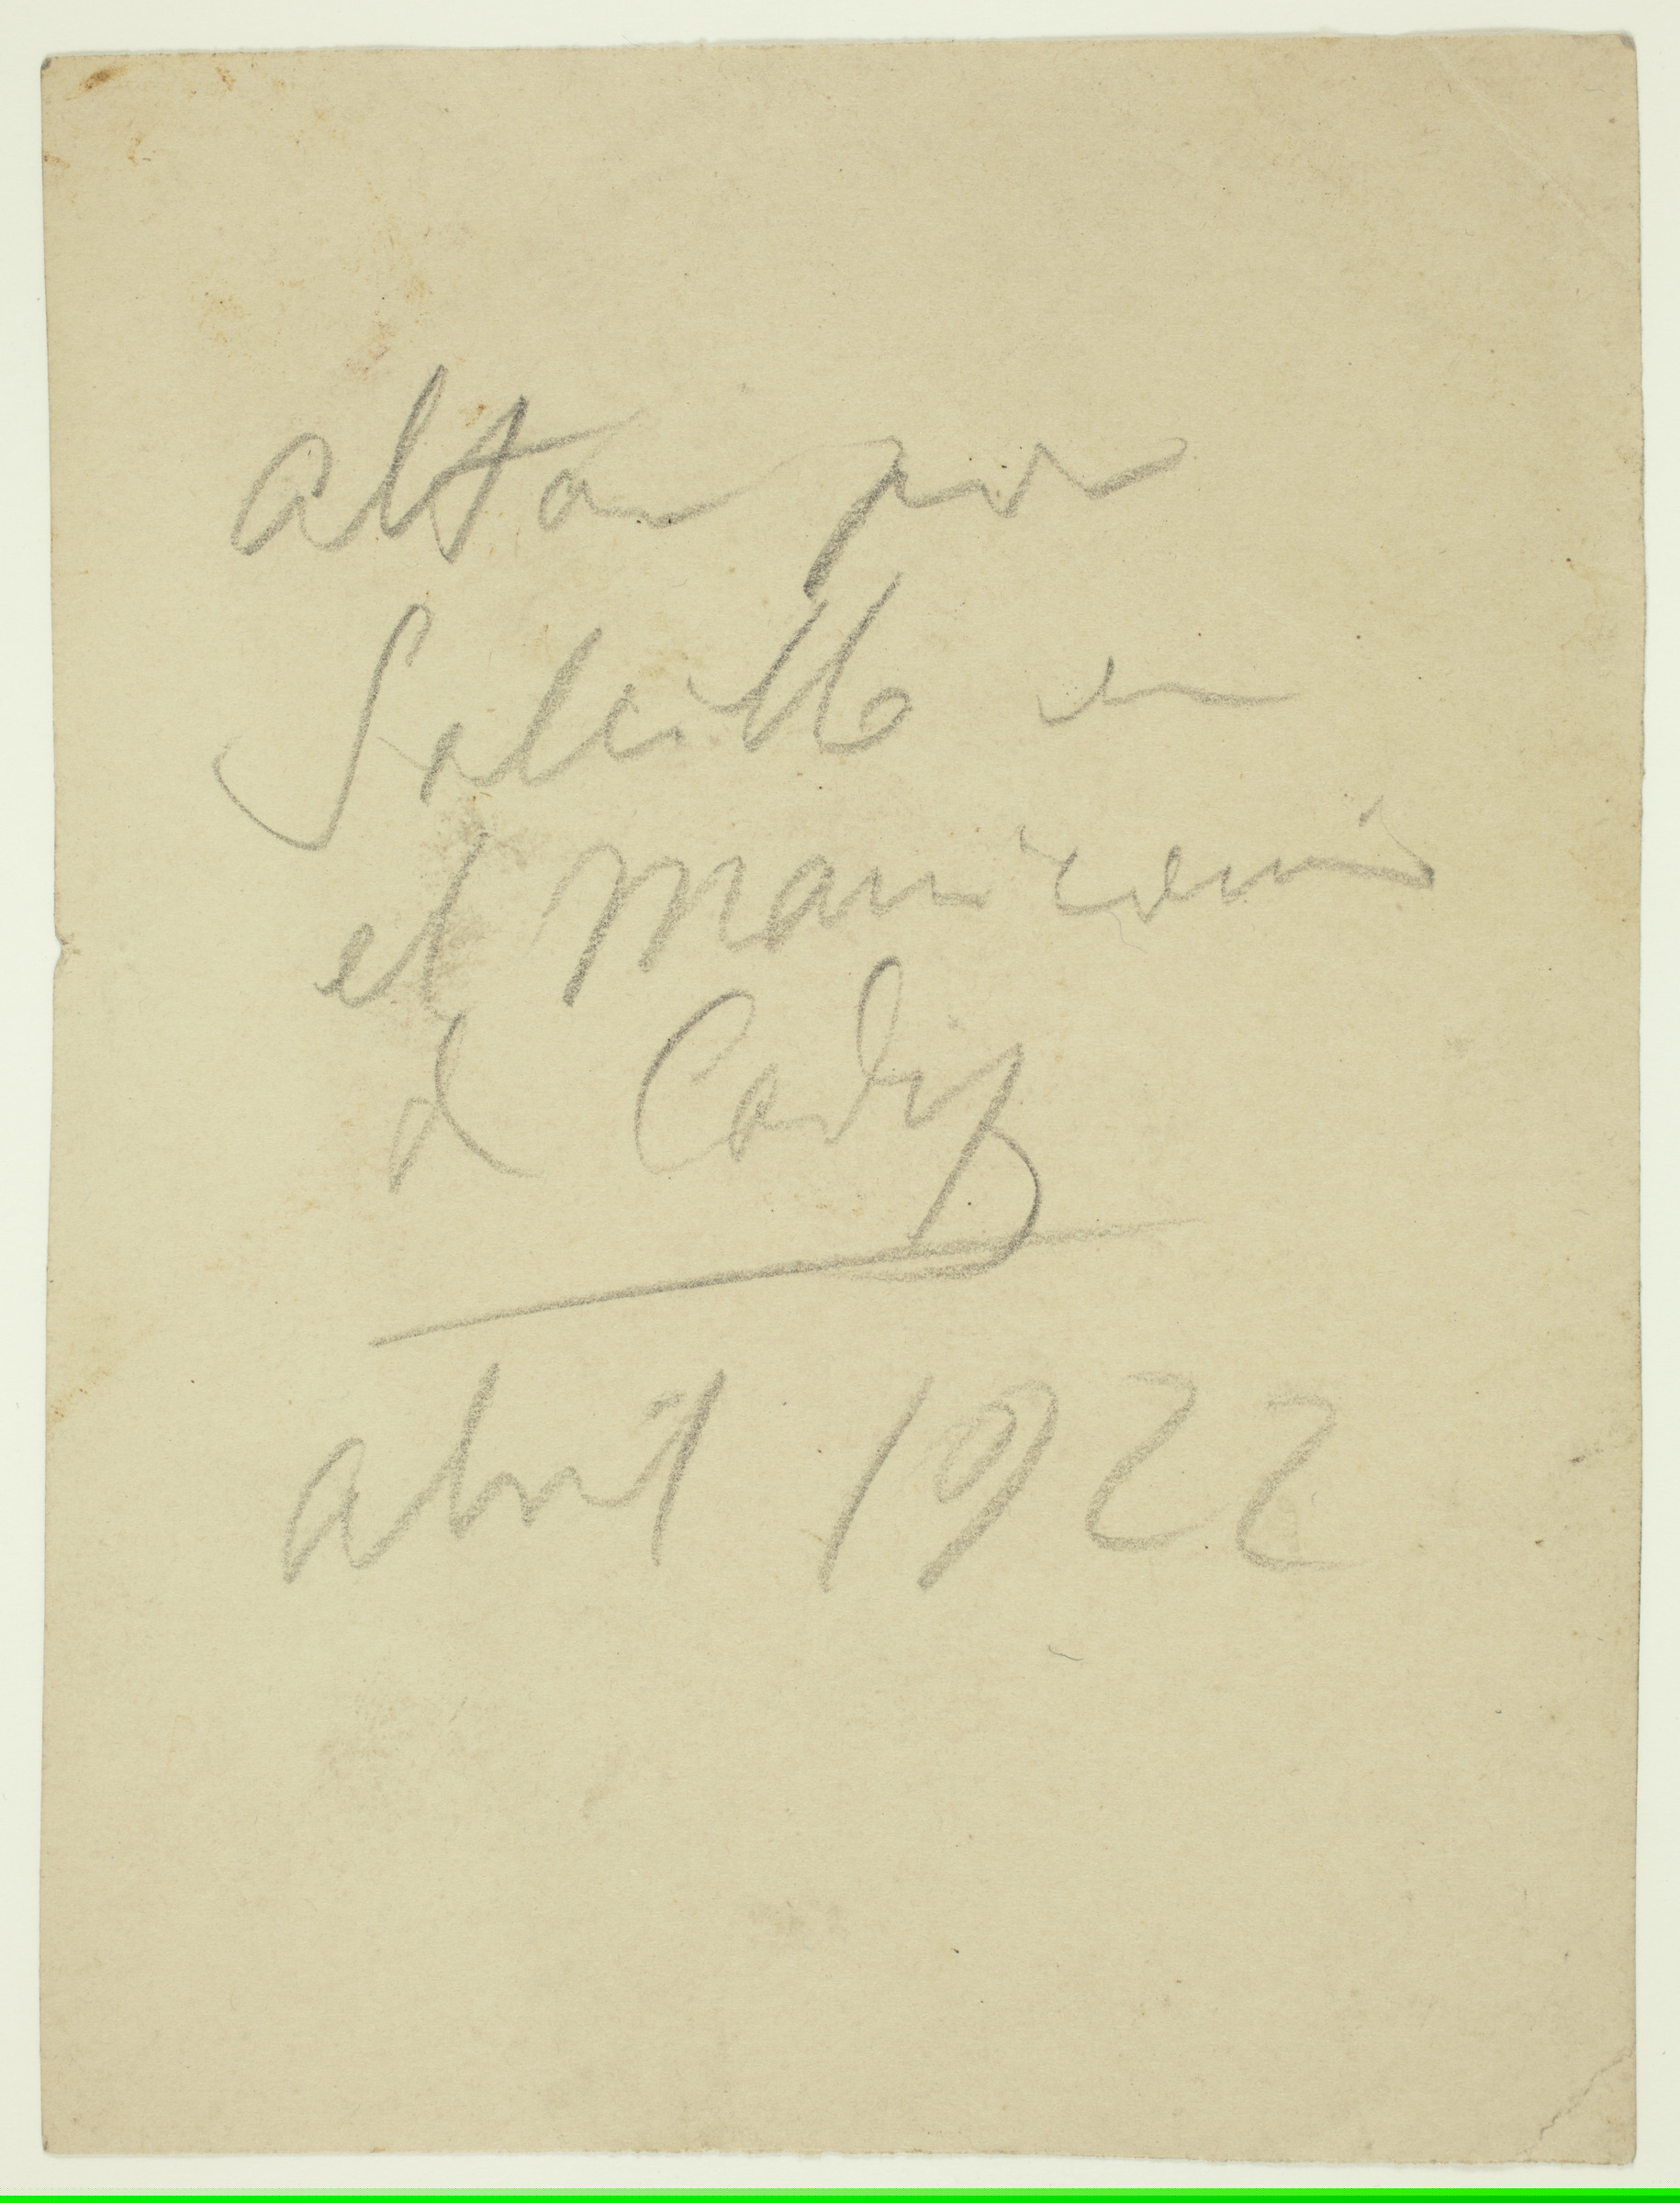 altar por
Salcillo en
el manicomio
de Cadiz
abril 1922